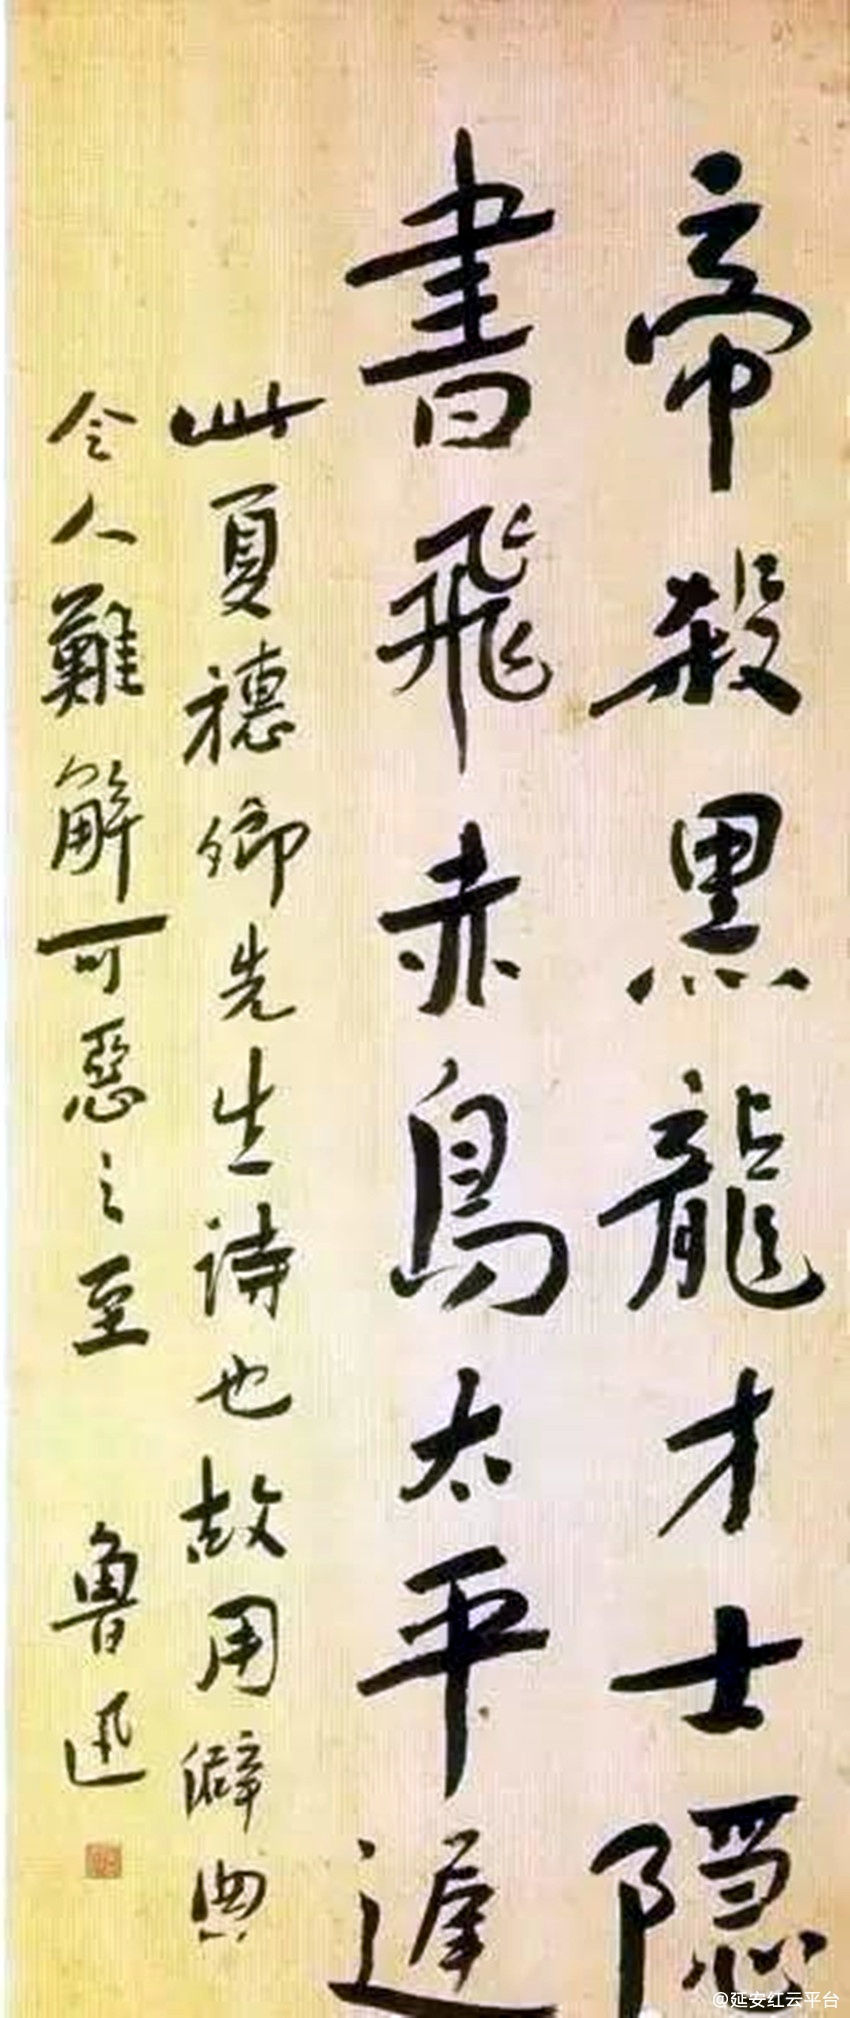 帝殺黑龍才士隱
書飛赤鳥太平遲
此夏穗卿先生诗也故用僻典
令人難解可惡之至
魯迅
@延安红云平台